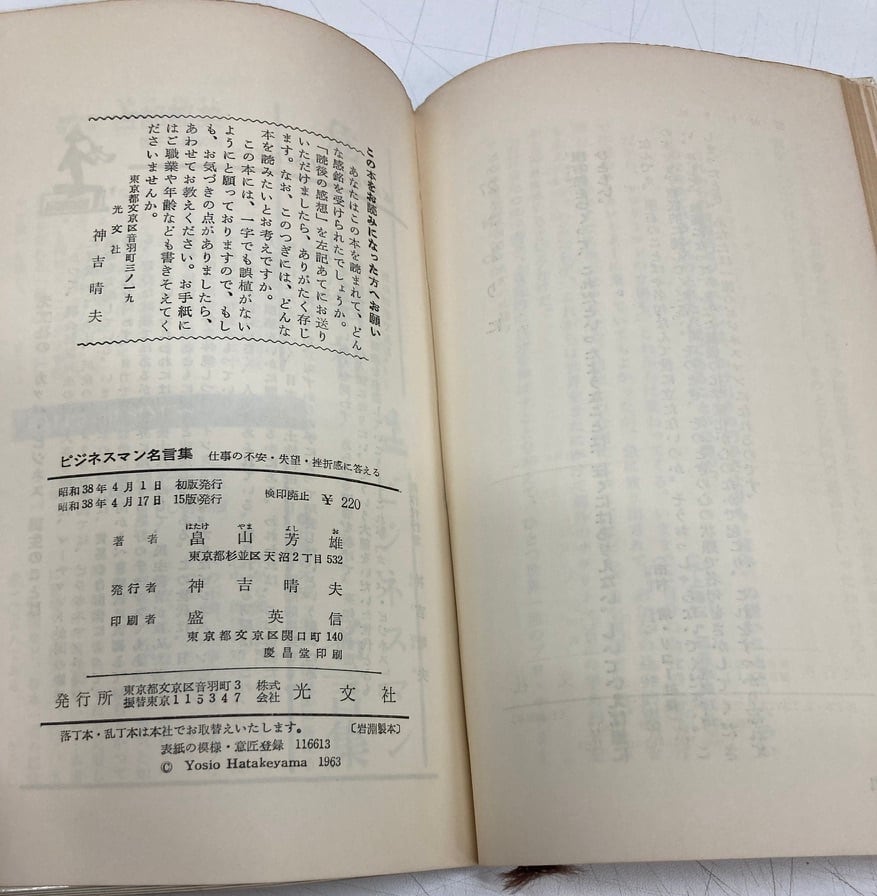 この本をお読みになった方へお願い
あなたはこの本を読まれて、どん
な感銘を受けられたでしょうか。
「読後の感想」を左記あてにお送り
いただけましたら、ありがたく存じ
ます。なお、このつぎには、どんな
本を読みたいとお考えですか。
この本には、一字でも誤植がない
ようにと願っておりますので、もし
も、お気づきの点がありましたら、
あわせてお教えください。お手紙に
はご職業や年齢なども書きそえてく
ださいませんか。
東京都文京区音羽町三ノ一九
光文社
神吉晴夫
ビジネスマン名言集 仕事の不安・失望・挫折感に答える
昭和38年4月1日 初版発行
昭和38年4月17日 15版発行 検印廃止 ¥ 220
はたけ やま よし お
著者 畠山芳雄
東京都杉並区天沼2丁目532
発行者 神吉晴夫
印刷者 盛英信
東京都文京区関口町140
慶昌堂印刷
発行所 東京都文京区音羽町3 株式 光文社
振替東京115347 会社
落丁本・乱丁本は本社でお取替えいたします。 〔岩淵製本〕
表紙の模様・意匠登録 116613
© Yosio Hatakeyama 1963